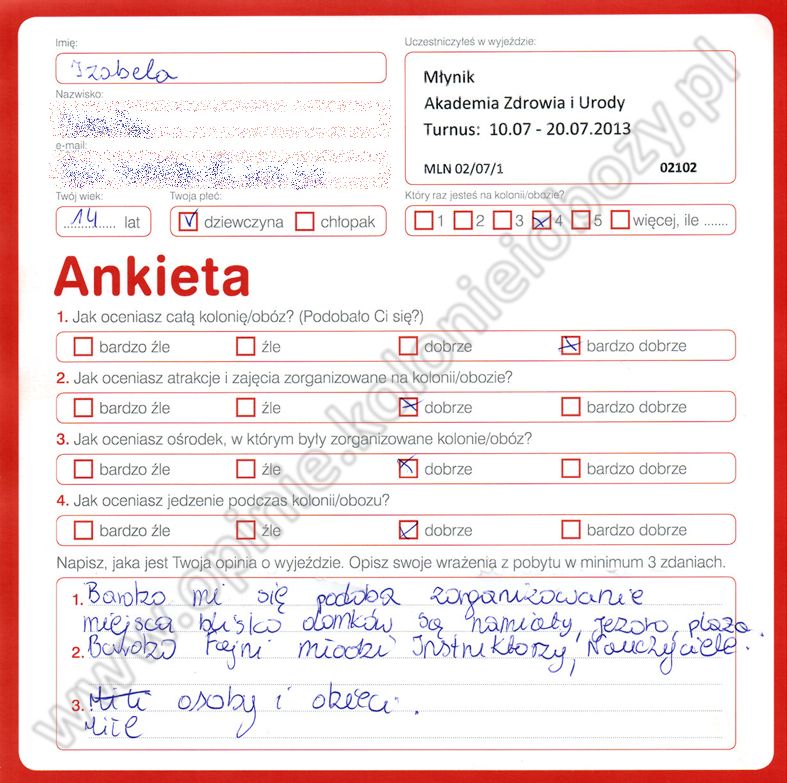 Imię:
Izabela
Nazwisko:
e-mail:
Twój wiek:
14 lat
Twoja płeć:
dziewczyna chłopak
Uczestniczyłeś w wyjeździe:
Młynik
Akademia Zdrowia i Urody
Turnus: 10.07 - 20.07.2013
MLN 02/07/1 02102
Który raz jesteś na kolonii/obozie?
1 2 3 4 5 więcej, ile .......
Ankieta
1. Jak oceniasz całą kolonię/obóz? (Podobało Ci się?)
bardzo źle źle dobrze bardzo dobrze
2. Jak oceniasz atrakcje i zajęcia zorganizowane na kolonii/obozie?
bardzo źle źle dobrze bardzo dobrze
3. Jak oceniasz ośrodek, w którym były zorganizowane kolonie/obóz?
bardzo źle źle dobrze bardzo dobrze
4. Jak oceniasz jedzenie podczas kolonii/obozu?
bardzo źle źle dobrze bardzo dobrze
Napisz, jaka jest Twoja opinia o wyjeździe. Opisz swoje wrażenia z pobytu w minimum 3 zdaniach.
1. Bardzo mi się podoba zorganizowanie
miejsca blisko domków są namioty, jezoro, plaża.
2. Bardzo Fajni młodzi Instruktorzy, Nauczyciele.
3. Miłe osoby i dzieci.
Miłe
www.opinie.kolonieiobozy.pl